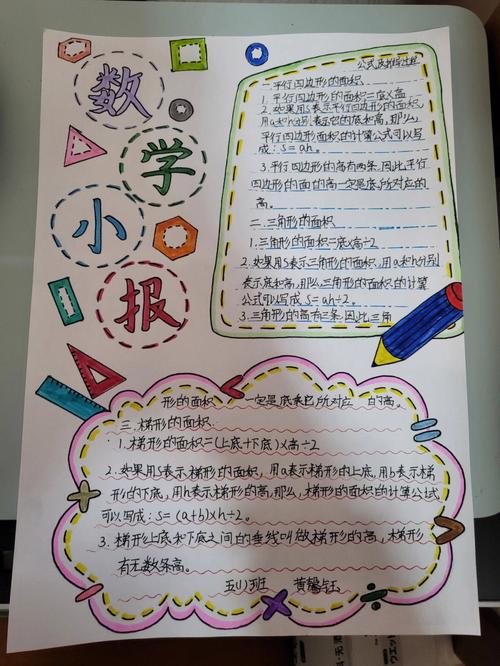 数
学
小
报
公式及推导过程
一.平行四边形的面积
1.平行四边形的面积=底×高
2.如果用S表示平行四边形的面积,
用a和h分别表示它的底和高,那么,
平行四边形面积的计算公式可以写
成:S=ah。
3.平行四边形的高有两条.因此,平行
四边形的面的高一定是底所对应的
高。
二.三角形的面积
1.三角形的面积=底×高÷2
2.如果用S表示三角形的面积,用a和h分别
表示底和高,那么,三角形的面积的计算
公式可以写成S=ah÷2。
3.三角形的高有三条.因此,三角
形的面积 一定是底乘它所对应 的高。
三.梯形的面积
1.梯形的面积=(上底+下底)×高÷2
2.如果用S表示梯形的面积,用a表示梯形的上底,用b表示梯
形的下底,用h表示梯形的高,那么,梯形的面积的计算公式
可以写成:S=(a+b)×h÷2。
3.梯形上底和下底之间的垂线叫做梯形的高,梯形
有无数条高。
五(1)班 黄馨钰